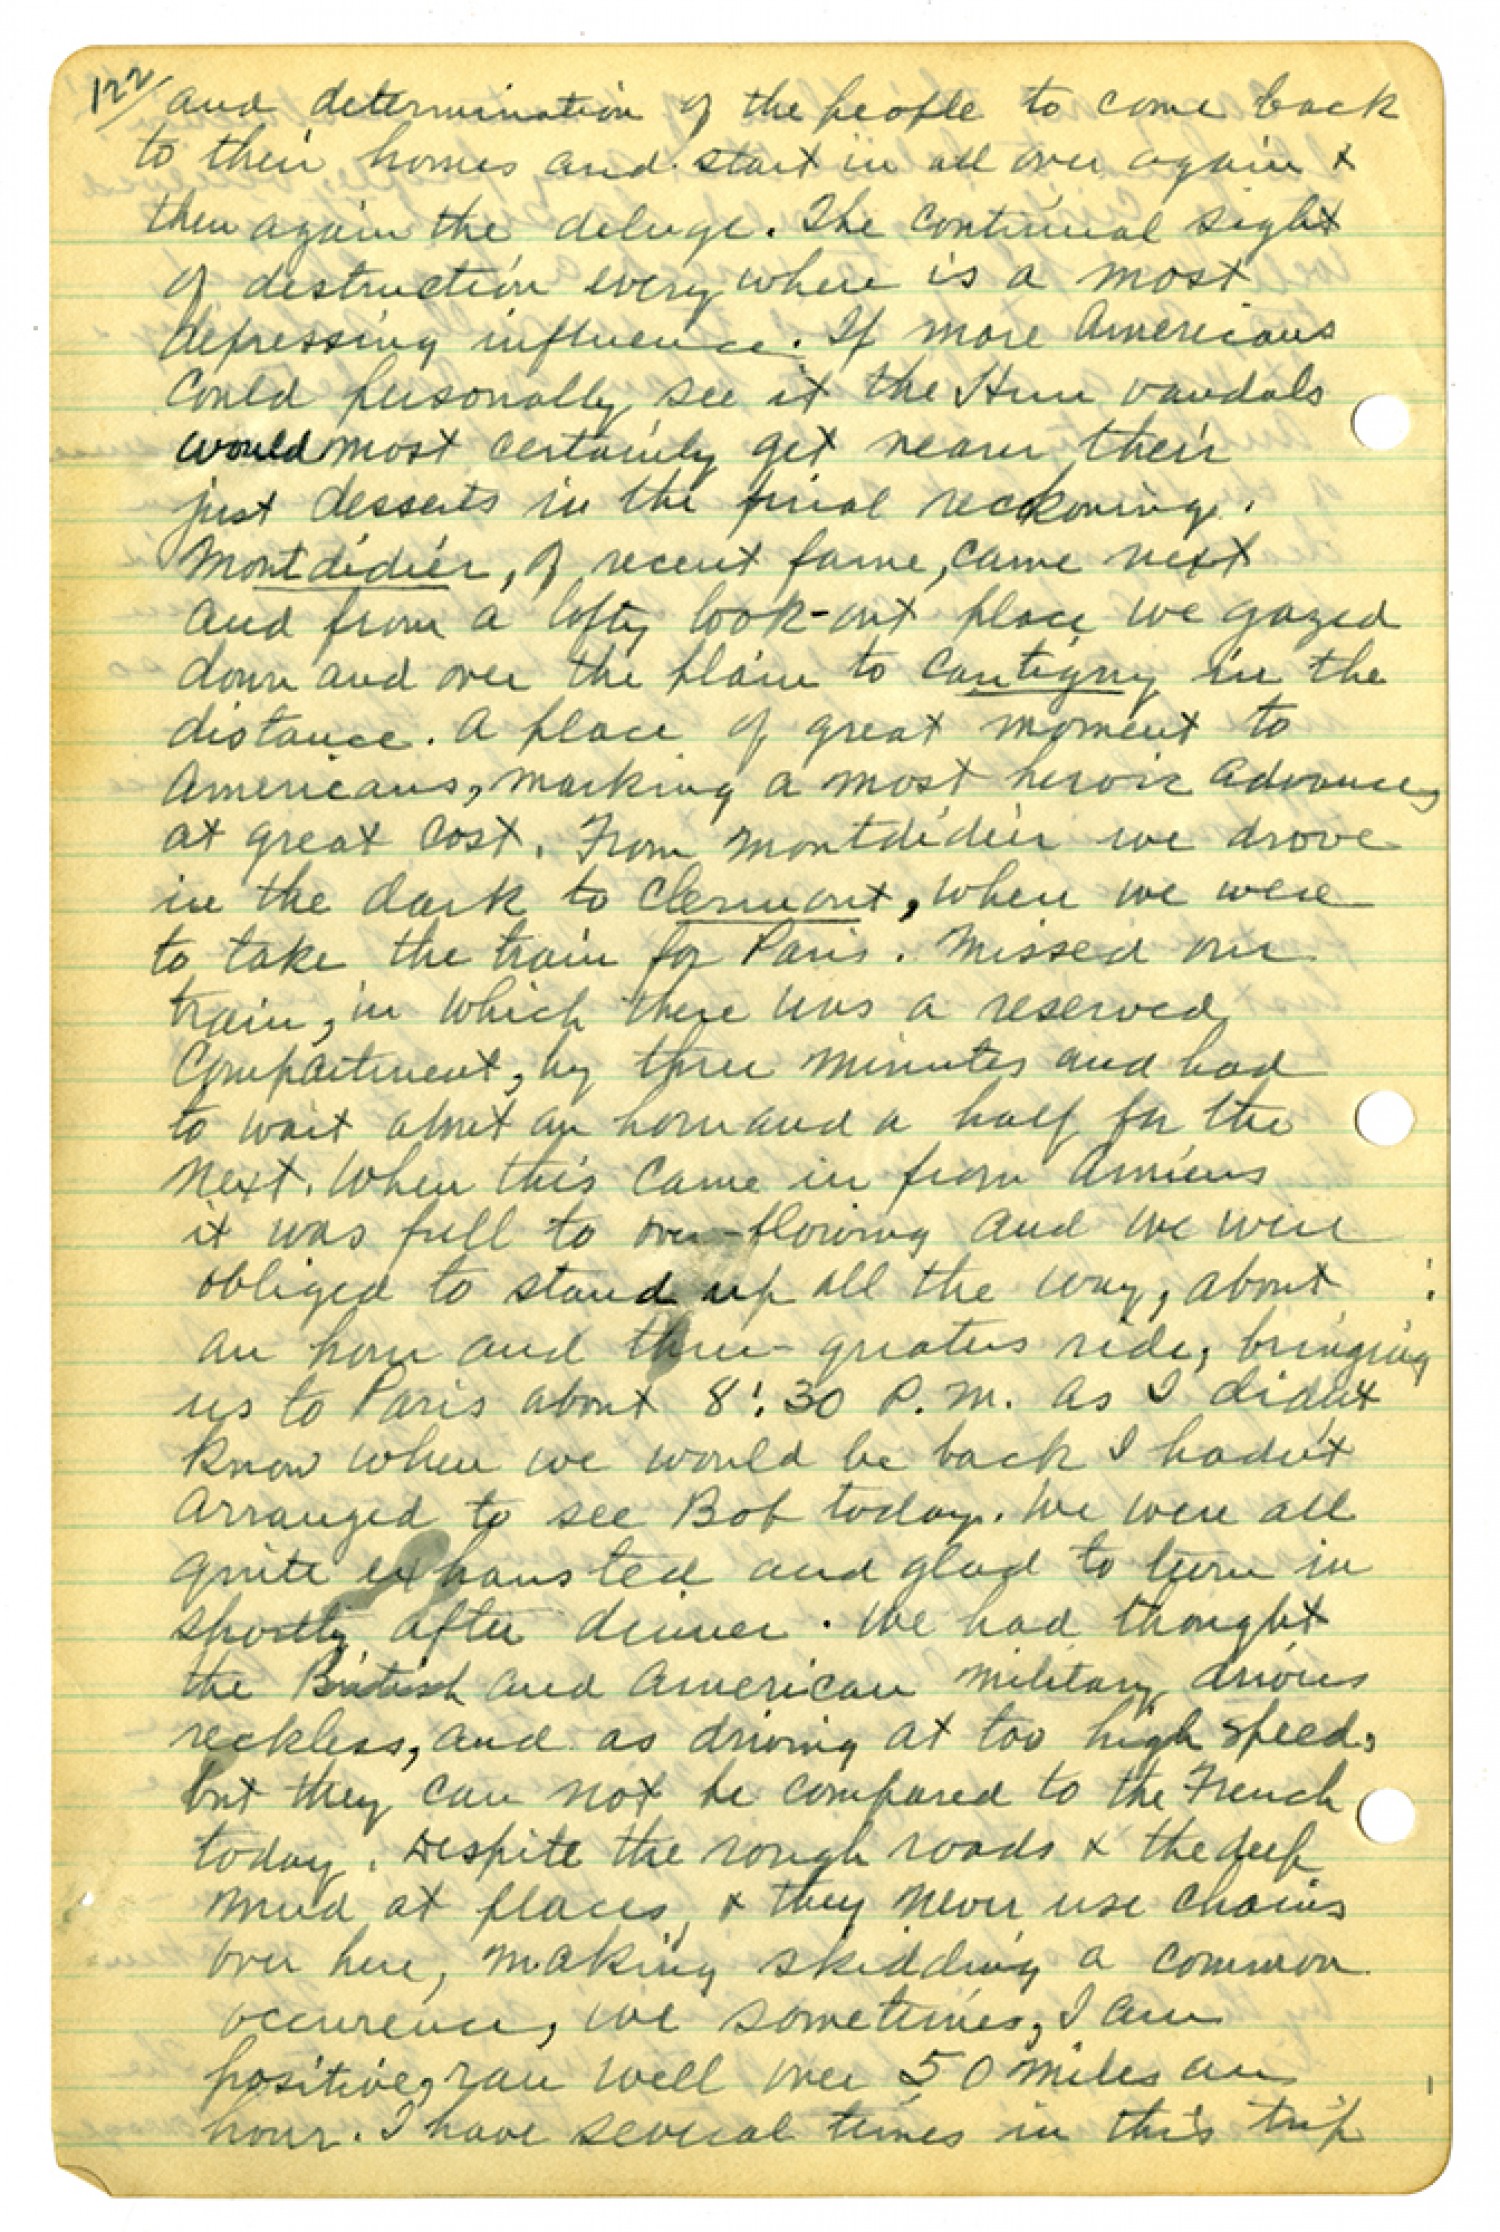 122/ and determination of the people to come back
to their homes and start in all over again &
then again the deluge. The continual sight
of destruction every where is a most
depressing influence. If more Americans
could personally see it the Hun vandals
would most certainly get nearer their
just desserts in the final reckoning.
Montdidier, of recent fame, came next
and from a lofty look-out place we gazed
down and over the plain to Cantigny in the
distance. A place of great moment to
Americans, marking a most heroic advance,
at great cost. From Montdidier we drove
in the dark to Clermont, where we were
to take the train for Paris. Missed our
train, in which there was a reserved
compartment, by three minutes and had
to wait about an hour and a half for the
next. When this came in from Amiens
it was full to over-flowing and we were
obliged to stand up all the way, about
an hour and three-quaters ride, bringing
us to Paris about 8:30 P.M. As I didn't
know when we would be back I hadn't
arranged to see Bob today. We were all
quite exhausted and glad to turn in
shortly after dinner. We had thought
the British and American military drivers
reckless, and as driving at too high speed,
but they can not be compared to the French
today. Despite the rough roads & the deep
mud at places, & they never use chains
over here, making skidding a common
occurence, we sometimes, I am
positive, ran well over 50 miles an
hour. I have several times in this trip